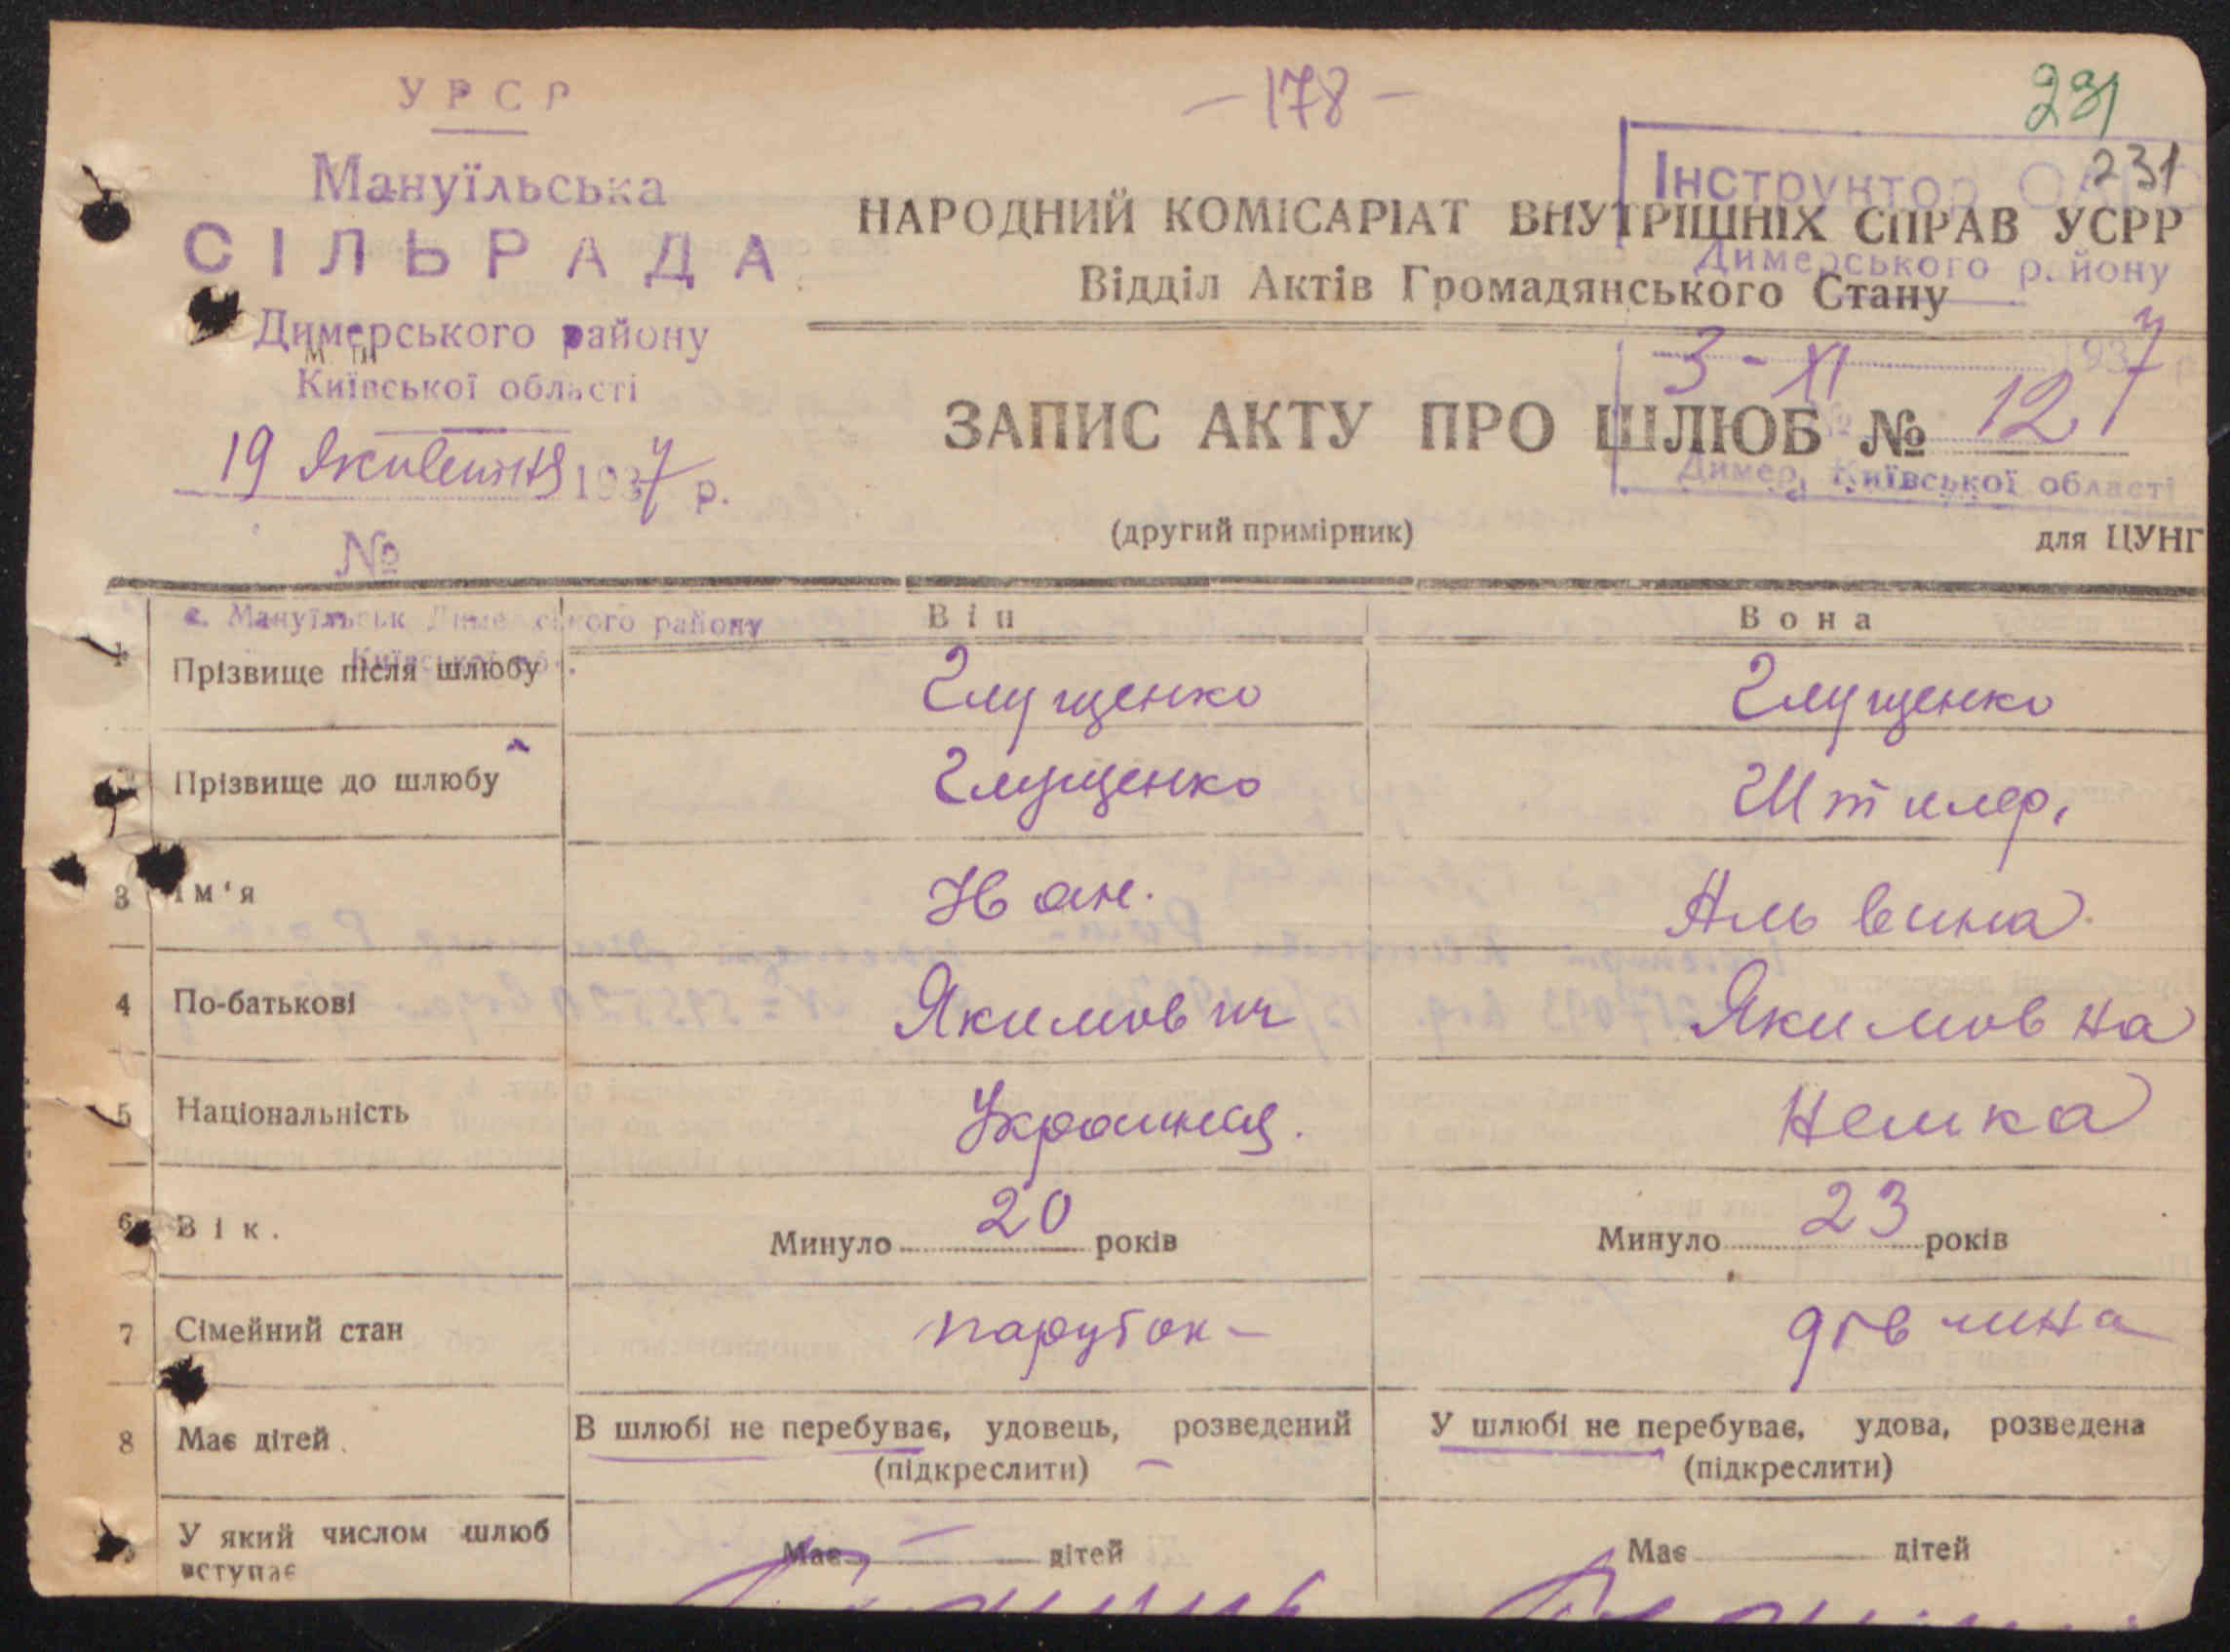 УРСР
Мануїльська
СІЛЬРАДА
Димерського району
М. П.
Київської області
19 1937 р.
№
- 178 -
231
231
Інструктор
НАРОДНИЙ КОМІСАРІАТ ВНУТРІШНІХ СПРАВ УСРР
Димерського району
Відділ Актів Громадянського Стану
3-XI 1937 р.
ЗАПИС АКТУ ПРО ШЛЮБ № 12
Димер, Київської області
(другий примірник)
для ЦУНГ
с. Мануїльськ Димерського району
Він Вона
1 Прізвище після шлюбу Глущенко Глущенко
Прізвище до шлюбу Глущенко Штилер.
3 Ім'я Іван. Альвина
4 По-батькові Якимович Якимовна
5 Національність Украинец. Немка
6 Вік. Минуло 20 років Минуло 23 років
7 Сімейний стан паруток - дівчина
8 Має дітей В шлюбі не перебуває, удовець, розведений У шлюбі не перебуває, удова, розведена
(підкреслити) (підкреслити)
У який числом шлюб вступає Має - дітей Має дітей